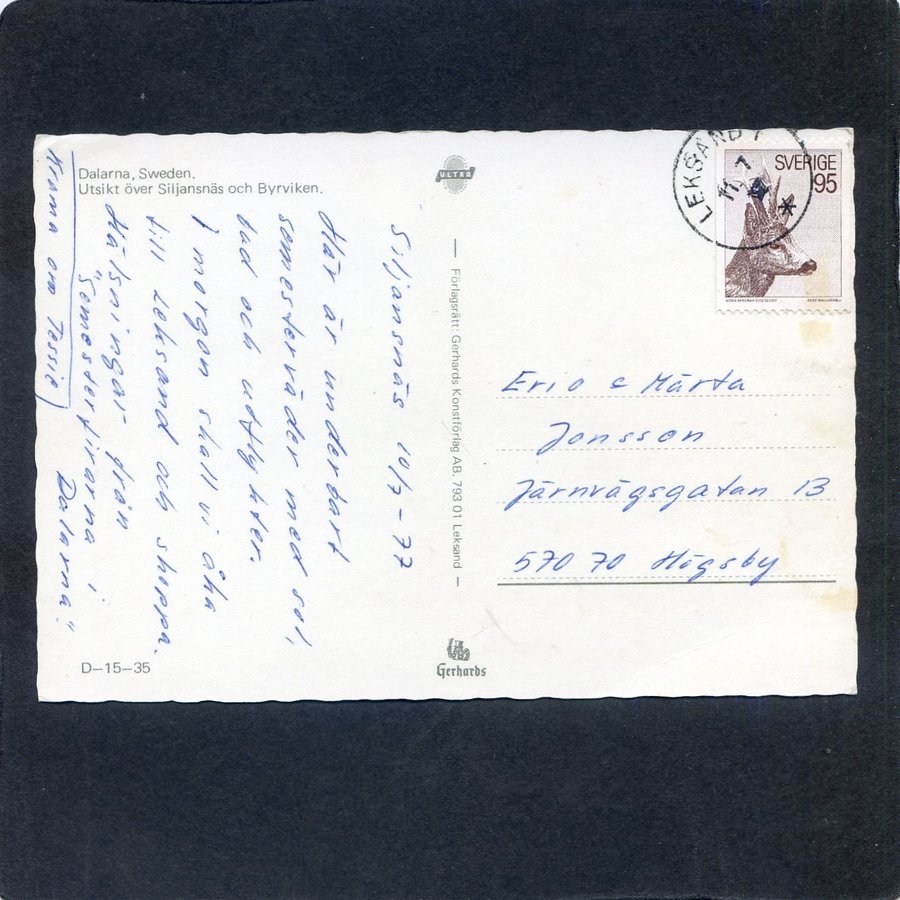 Dalarna, Sweden.
Utsikt över Siljansnäs och Byrviken.
ULTRA
Siljansnäs 10/7-77
Här är underbart
semesterväder med sol,
bad och utflykter.
I morgon skall vi åka
till Leksand och shoppa.
Hälsningar från
"Semesterfirarna i
Dalarna."
Krama om Tessie
Förlagsrätt: Gerhards Konstförlag AB. 793 01 Leksand
D-15-35
Gerhards
LEKSAND 1
11.7
SVERIGE
95
Eric & Märta
Jonsson
Järnvägsgatan 13
570 70 Högsby